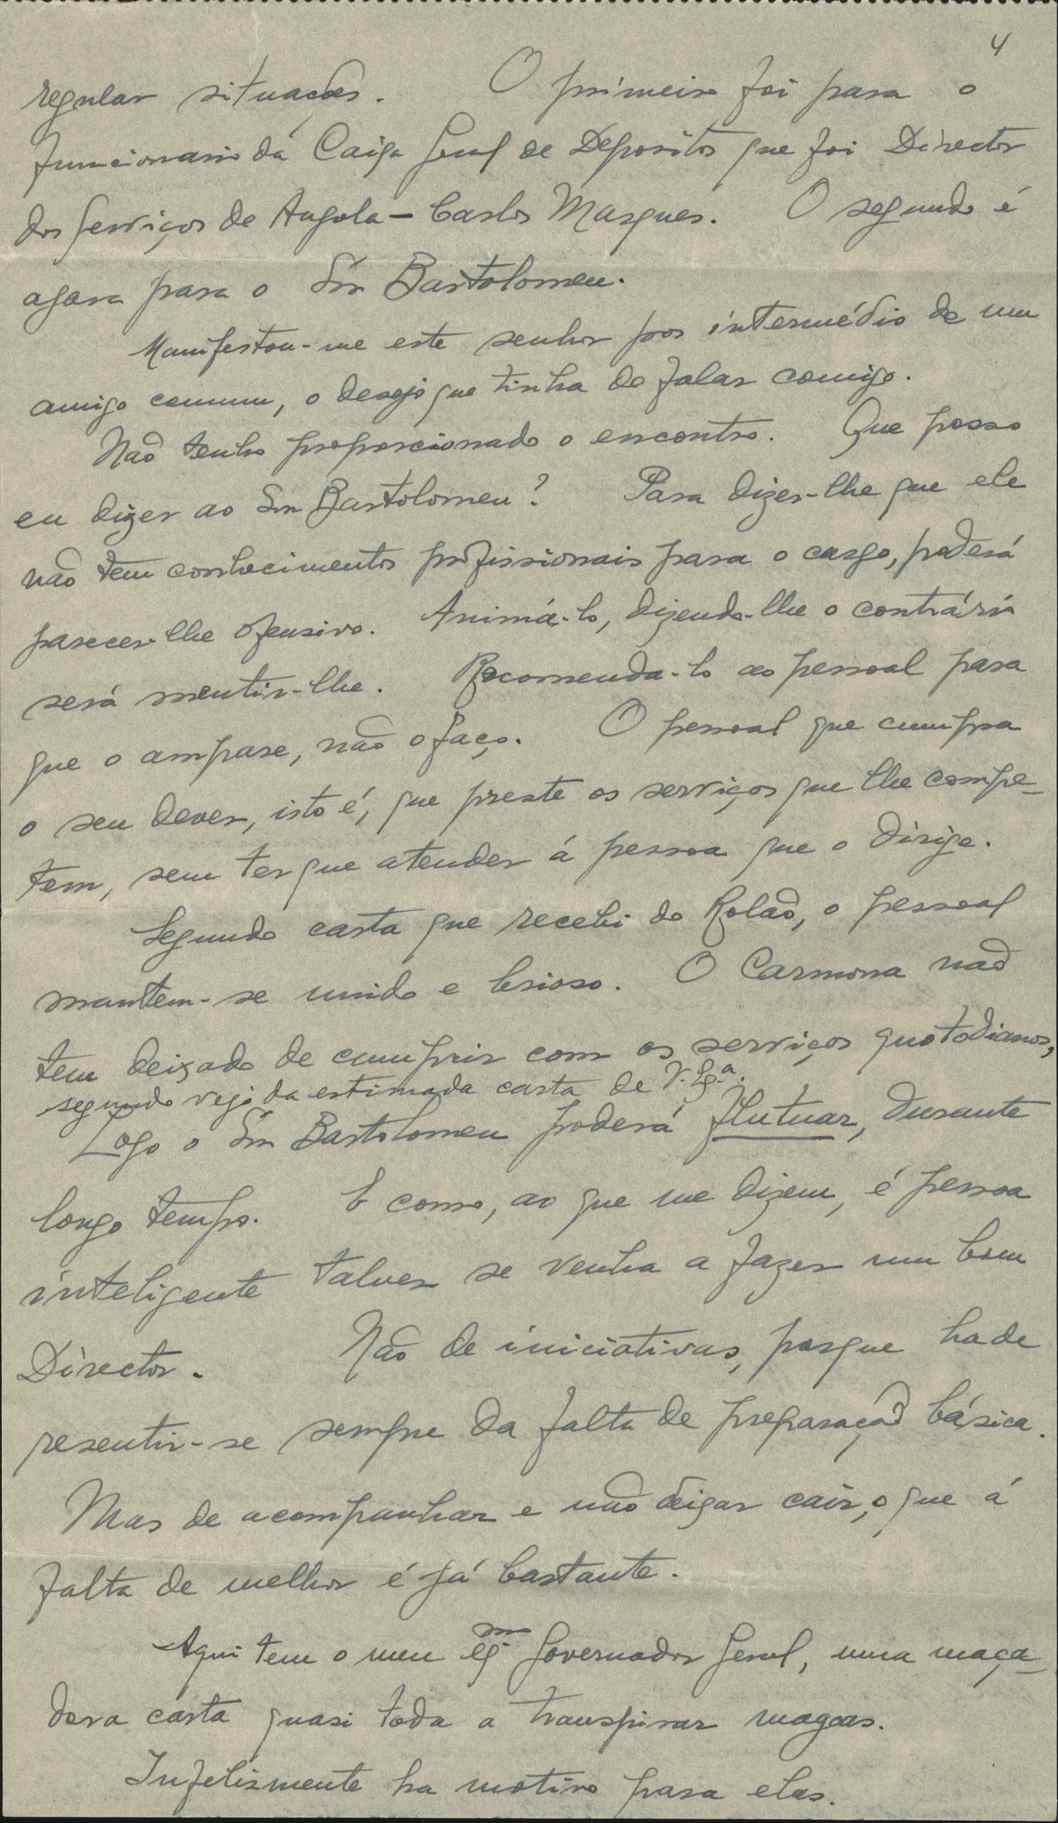 4
regular situações. O primeiro foi para o
funcionario da Caixa Geral de Depositos que foi Director
dos Serviços de Angola – Carlos Marques. O segundo é
agora para o Snr Bartolomeu.
Manifestou-me este senhor por intermédio de um
amigo comum, o desejo que tinha de falar comigo.
Não tenho proporcionado o encontro. Que posso
eu dizer ao Snr Bartolomeu? Para dizer-lhe que ele
não tem conhecimentos profissionais para o cargo, poderá
parecer-lhe ofensivo. Animá-lo, dizendo-lhe o contrário
será mentir-lhe. Recomenda-lo ao pessoal para
que o ampare, não o faço. O pessoal que cumpra
o seu dever, isto é, que preste os serviços que lhe compe-
tem, sem ter que atender á pessoa que o dirige.
Segundo carta que recebi do Rolão, o pessoal
mantem-se unido e brioso. O Carmona não
tem deixado de cumprir com os serviços quotodianos,
segundo vejo da estimada carta de V. Exª.
Logo o Snr Bartolomeu poderá flutuar, durante
longo tempo. E como, ao que me dizem, é pessoa
inteligente talvez se venha a fazer um bom
Director. Não de iniciativas, porque hade
resentir-se sempre da falta de preparação básica.
Mas de acompanhar e não deixar cair, o que á
falta de melhor é já bastante.
Aqui tem o meu Exmo Governador Geral, uma maça-
dora carta quasi toda a transpirar magoas.
Infelismente ha motivo para elas.